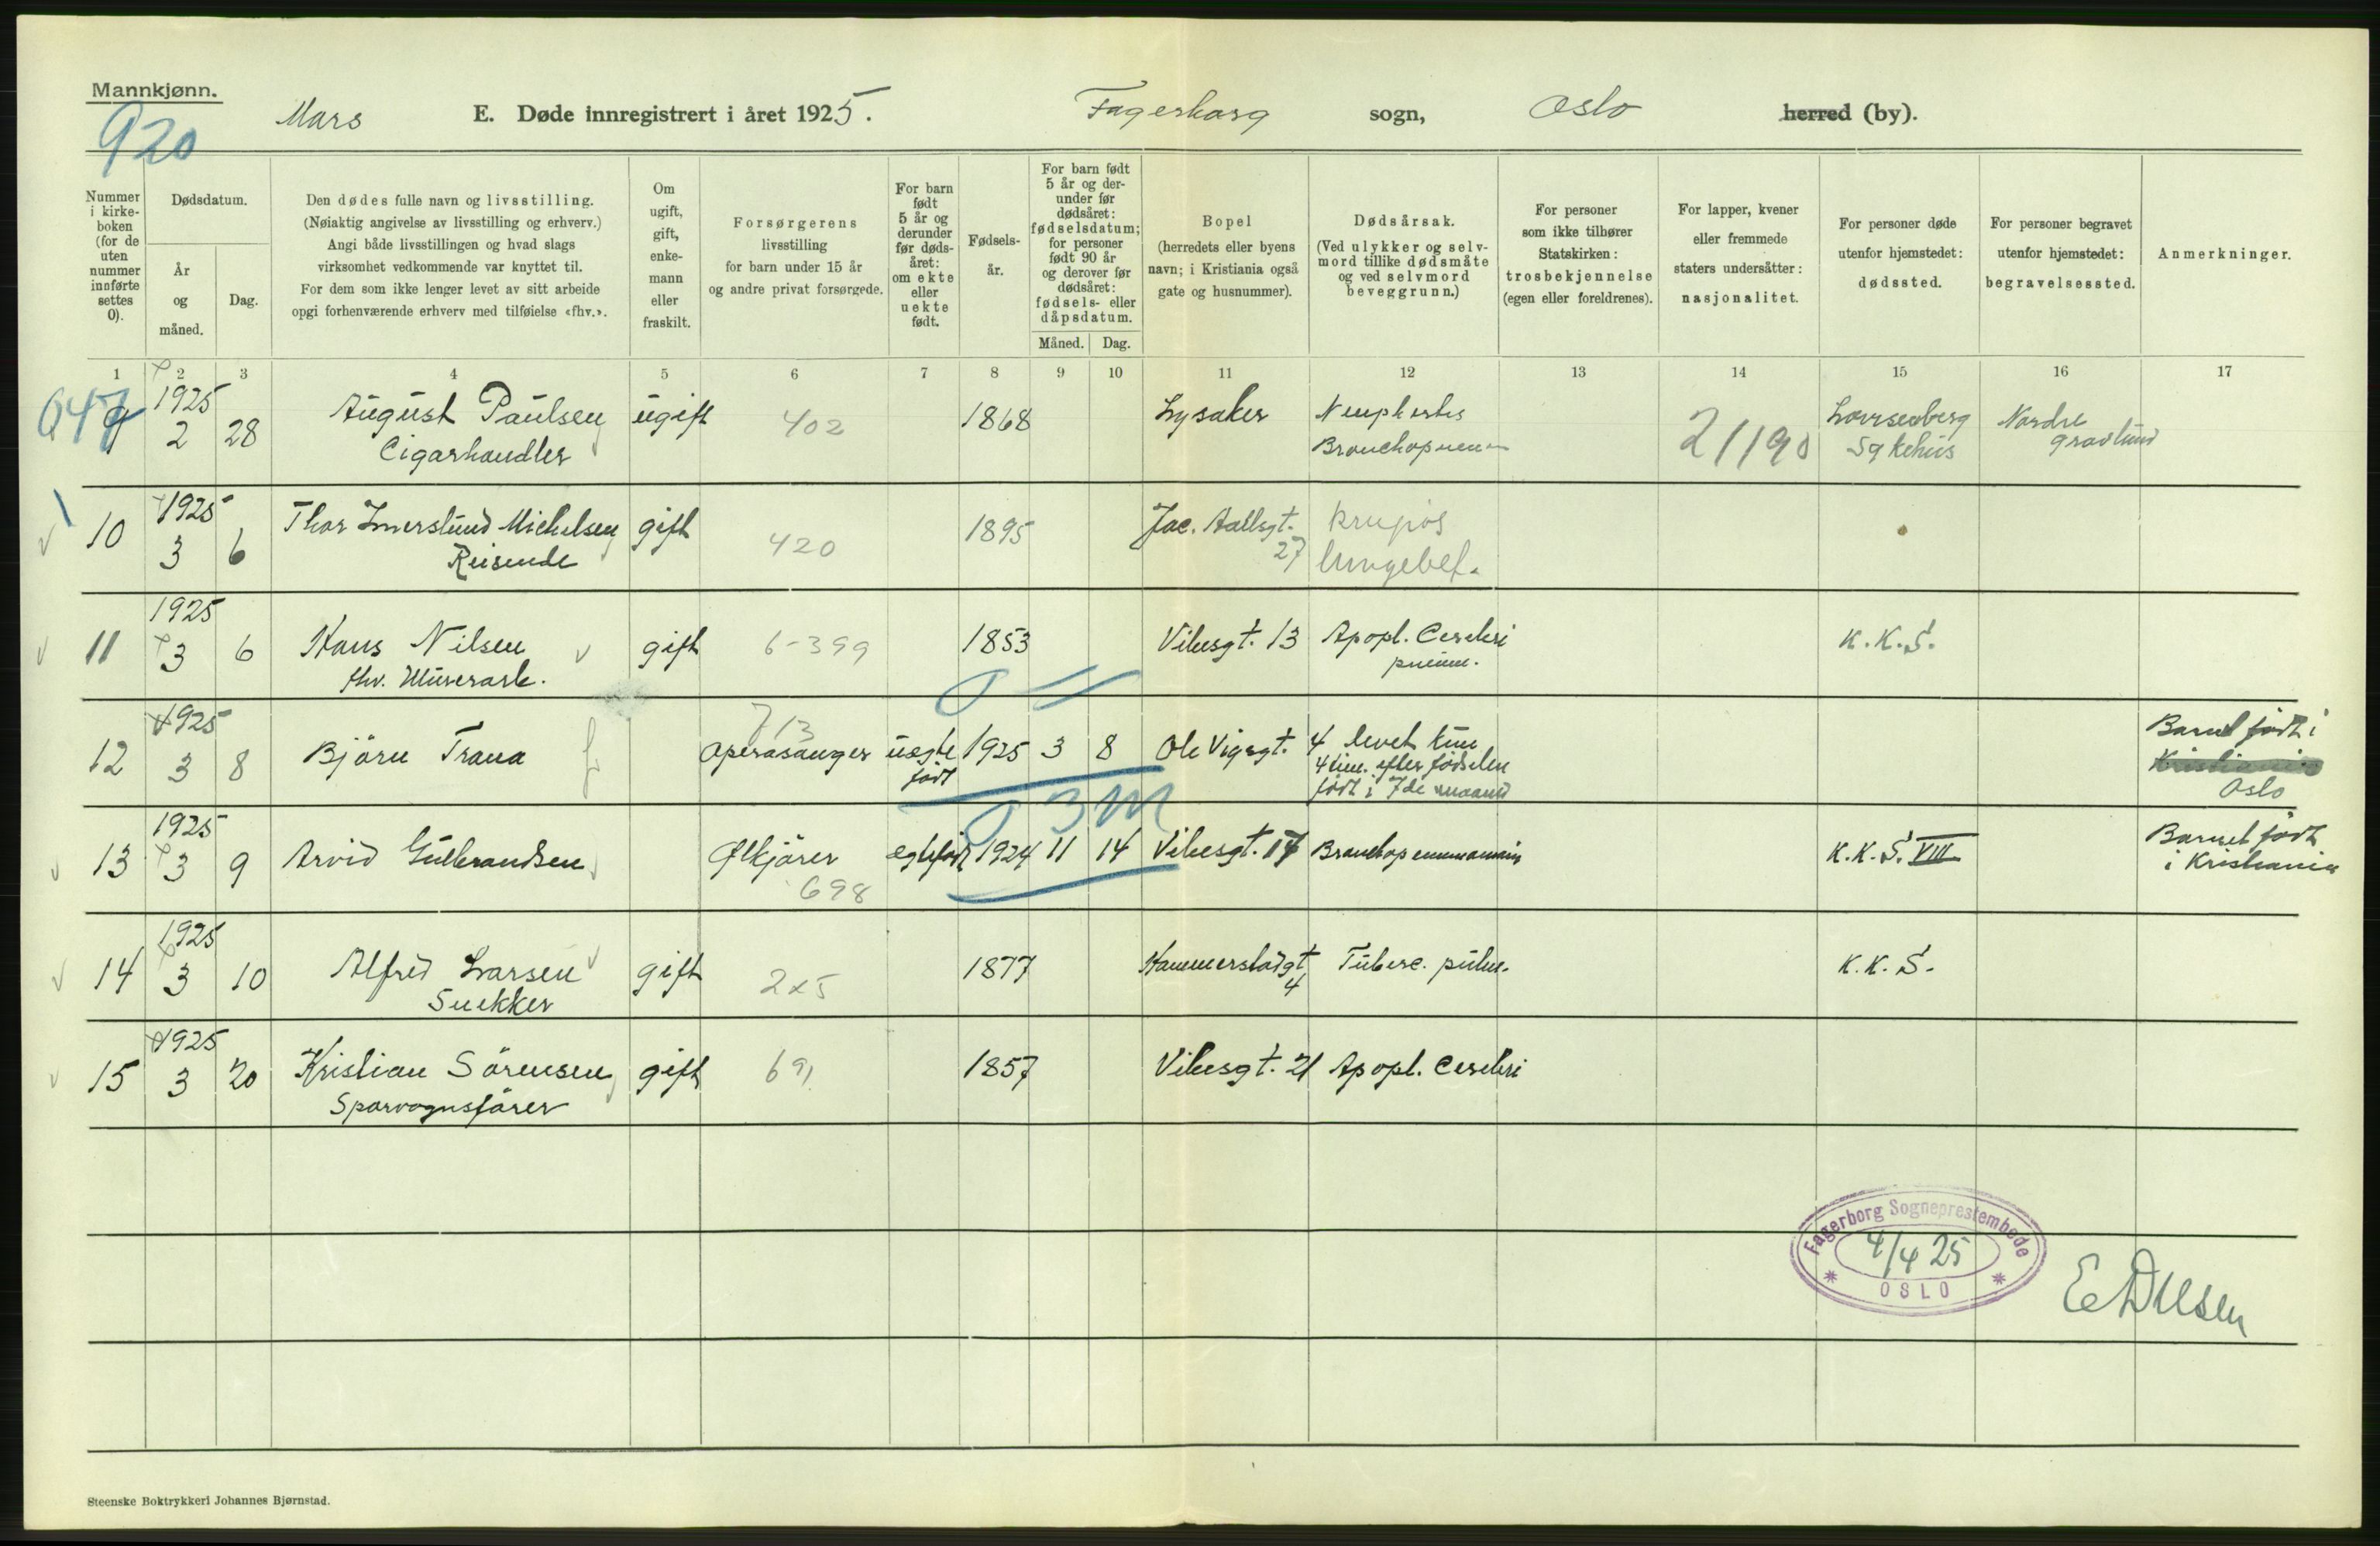 Mannkjønn.
920
Mars E. Døde innregistrert i året 1925. Fagerborg sogn, Oslo herred (by).
Nummer i kirke-boken (for de uten nummer innførte settes 0).
Dødsdatum.
År og måned.
Dag.
Den dødes fulle navn og livsstilling.
(Nøiaktig angivelse av livsstilling og erhverv.)
Angi både livsstillingen og hvad slags
virksomhet vedkommende var knyttet til.
For dem som ikke lenger levet av sitt arbeide
opgi forhenværende erhverv med tilføielse «fhv.».
Om ugift, gift, enke-mann eller fraskilt.
Forsørgerens
livsstilling
for barn under 15 år
og andre privat forsørgede.
For barn født 5 år og derunder før døds-året: om ekte eller uekte født.
Fødsels-år.
For barn født 5 år og der-under før dødsåret: fødselsdatum; for personer født 90 år og derover før dødsåret: fødsels- eller dåpsdatum.
Måned. Dag.
Bopel
(herredets eller byens
navn; i Kristiania også
gate og husnummer).
Dødsårsak.
(Ved ulykker og selv-
mord tillike dødsmåte
og ved selvmord
beveggrunn.)
For personer
som ikke tilhører
Statskirken:
trosbekjennelse
(egen eller foreldrenes).
For lapper, kvener
eller fremmede
staters undersåtter:
nasjonalitet.
For personer døde
utenfor hjemstedet:
dødssted.
For personer begravet
utenfor hjemstedet:
begravelsessted.
Anmerkninger.
1 2 3 4 5 6 7 8 9 10 11 12 13 14 15 16 17
9 1925 2 28 August Paulsen ugift 402 1868 Lysaker 21190 Nordre
Cigarhandler Bronchopneum Sykehus gravlund
10 1925 3 6 Thor Imerslund Michelsen gift 420 1895 Jac. Aallsgt. 27 krupøs
Reisende lungebet.
11 1925 3 6 Hans Nilsen gift 6-399 1853 Vibesgt. 13 Apopl. Cerebri K.K.S.
fhv. Murerarb. pneum.
12 1925 3 8 Björn Trana 713 Operasanger uægte født 1925 3 8 Ole Vigsgt. 4 levet kun
4 tim. efter fødselen
født i 7de maaned
Barnet født i
Kristiania
Oslo
13 1925 3 9 Arvid Gulbrandsen Ølkjører 698 egtefødt 1924 11 14 Vibesgt. 17 K.K.S. VIII Barnet født
i Kristiania
3 M
14 1925 3 10 Alfred Larsen gift 1877 Hammerstadgt 4 Tuberc. pulm. K.K.S.
Snekker
15 1925 3 20 Kristian Sörensen gift 691 1857 Vibesgt. 21 Apopl. Cerebri
Sporvognsfører
Fagerborg Sogneprestembede
4/4 25
OSLO
Steenske Boktrykkeri Johannes Bjørnstad.